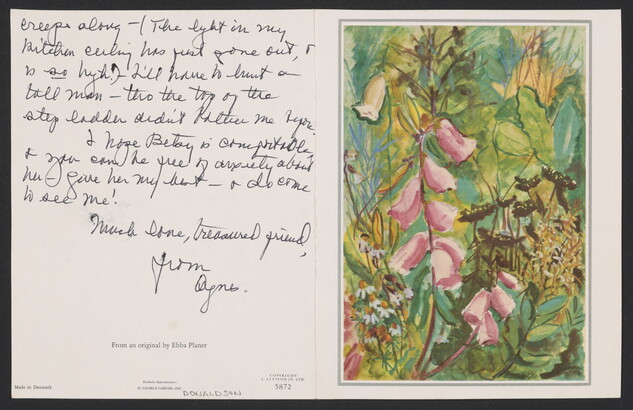 creeps along – (The light in my
kitchen ceiling has just gone out, &
is so high! I'll have to hunt a
tall man – tho the top of the
step ladder didn't bother me before.
I hope Betsy is comfortable,
& you can be free of anxiety about
her – give her my best – & do come
to see me!
Much love, treasured friend,
from
Agnes.
From an original by Ebba Planer
Made in Denmark
COPYRIGHT
5872
DONALDSON